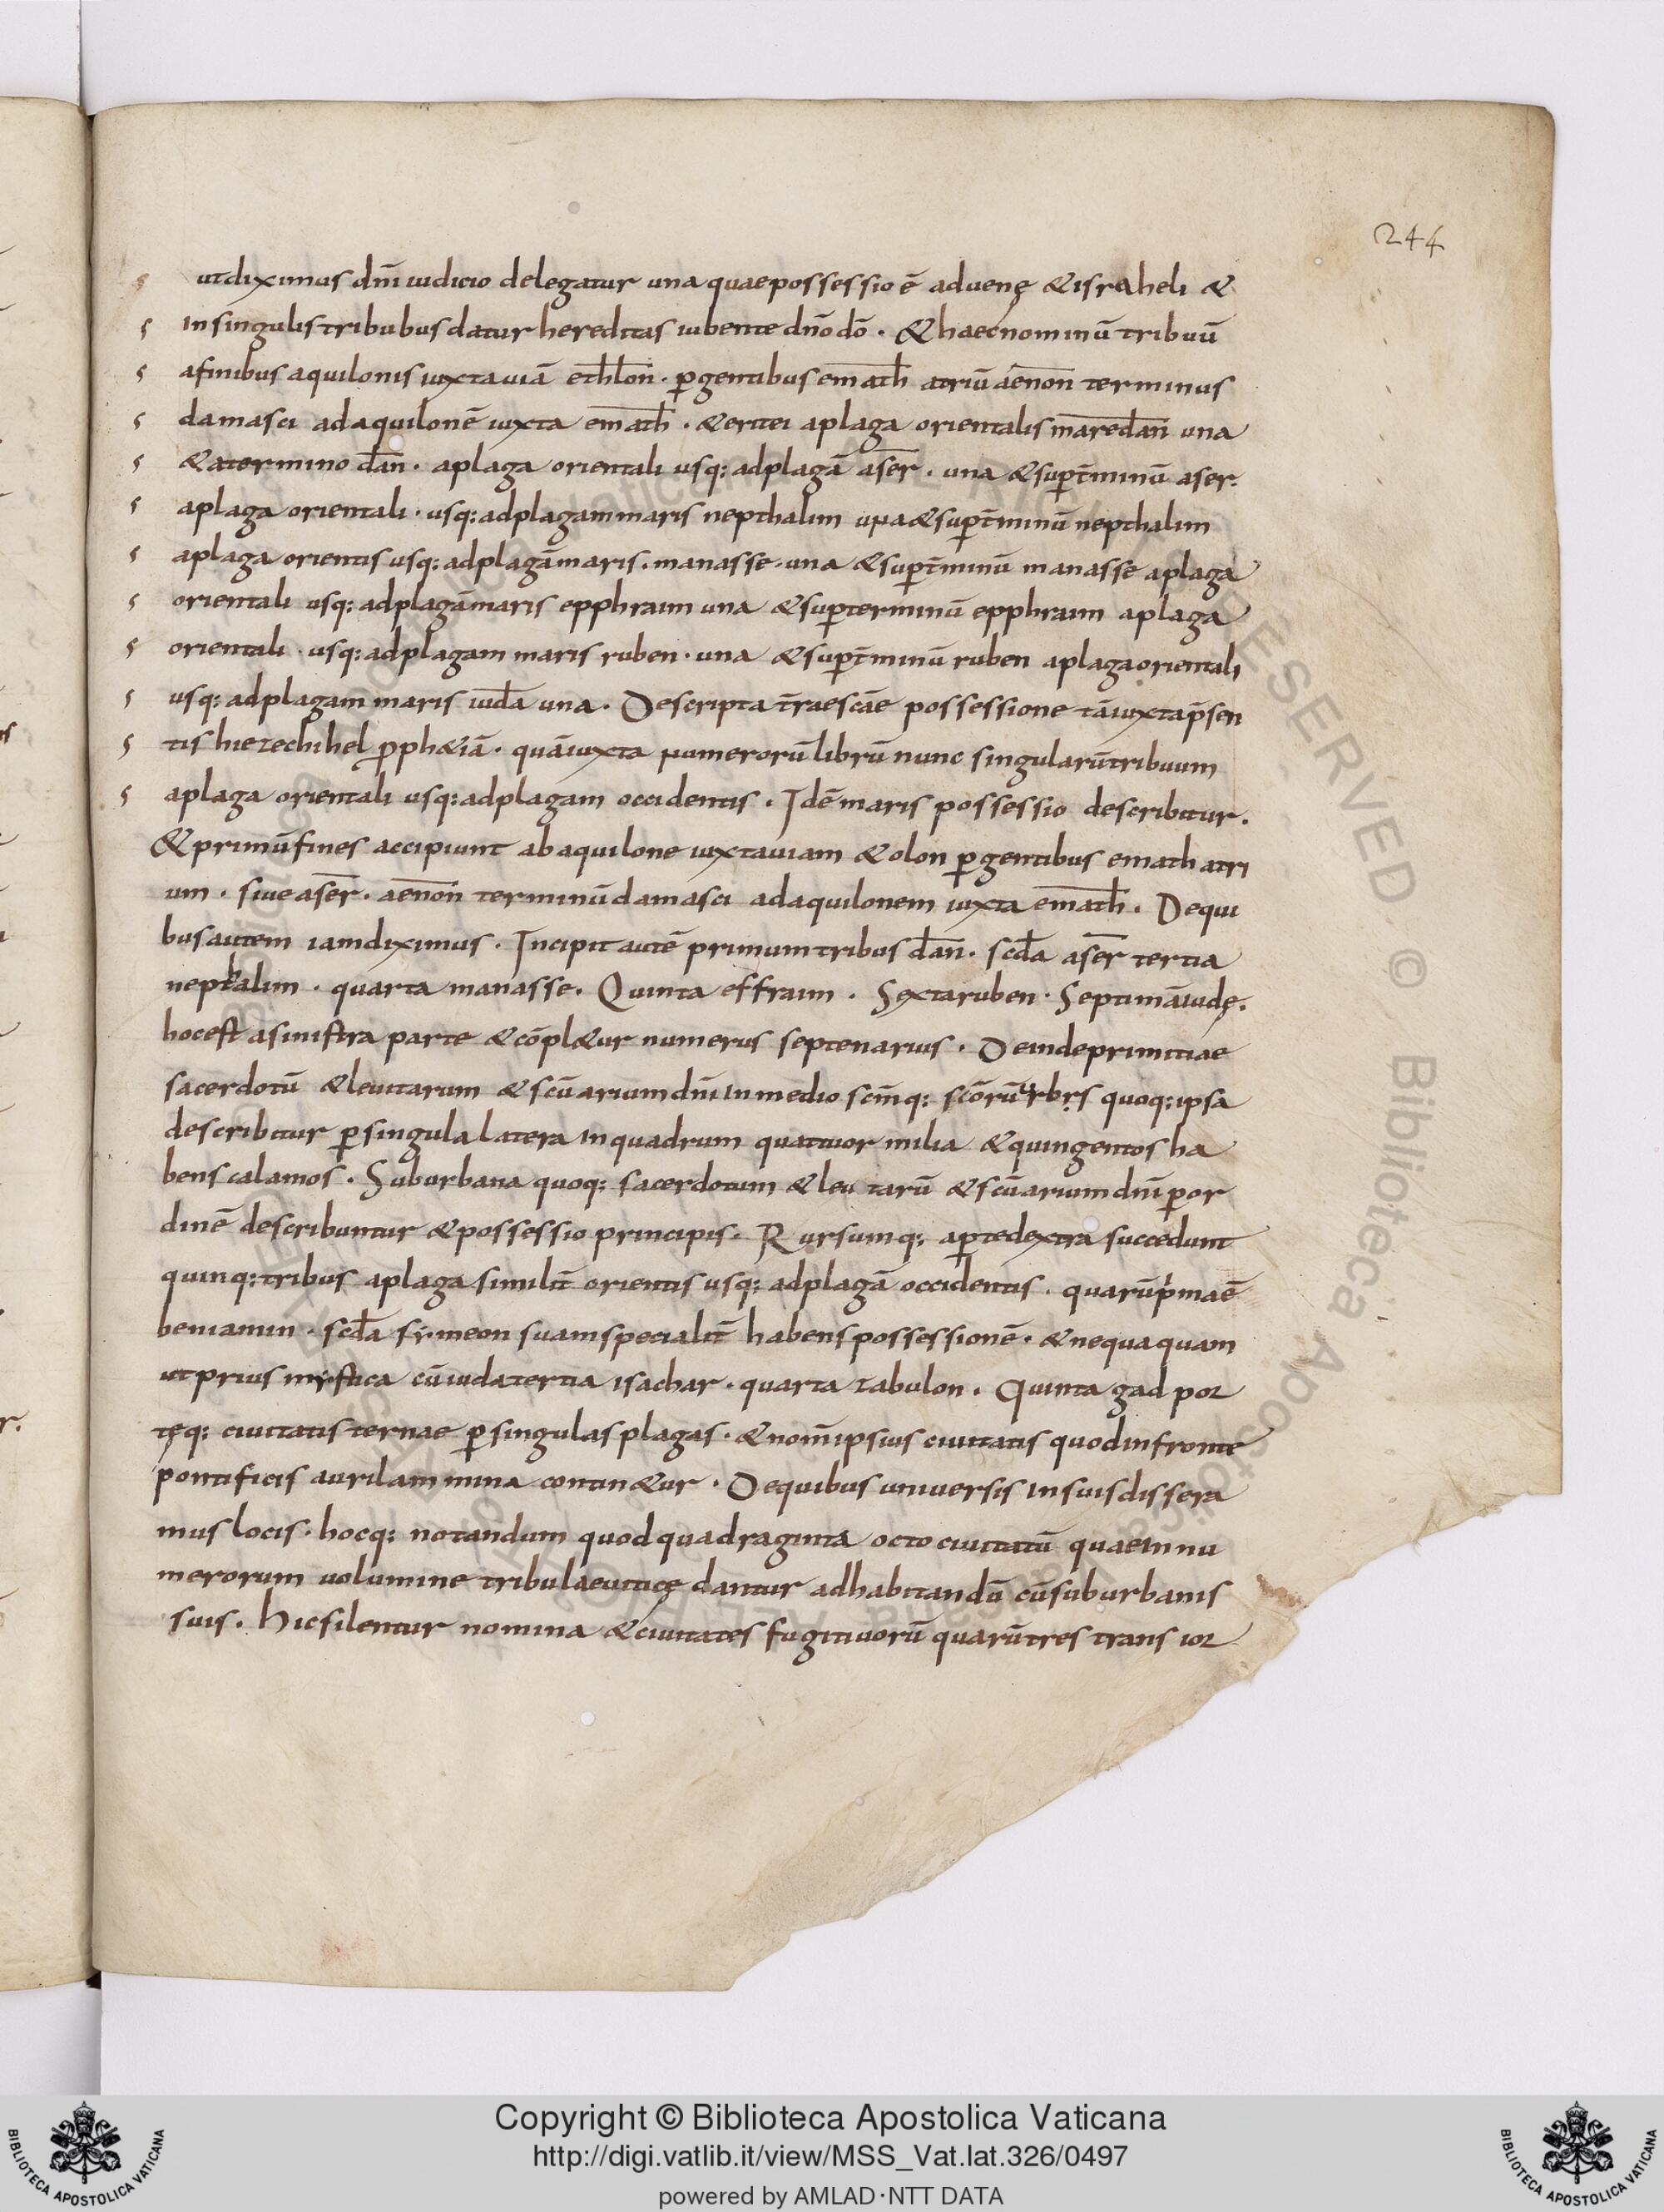 244
ut diximus dñi iudicio delegatur una quae possessio ē aduenę & israheli &
in singulis tribubus datur hereditas iubente dño dō · & haec nominū tribuū
a finibus aquilonis iuxta uiā ethlon · pgentibus emath atriū aenon terminus
damasci ad aquilonē iuxta emath · & erit ei a plaga orientalis mare dan una
& a termino dan · a plaga orientali usq: ad plagā aser · una & sup t̄minū aser ·
a plaga orientali · usq: ad plagam maris nepthalim una & sup t̄minū nepthalim
a plaga orientis usq: ad plagā maris · manasse · una & sup t̄minū manasse a plaga
orientali usq: ad plagā maris epphraim una & sup terminū epphraim a plaga
orientali · usq: ad plagam maris ruben · una & sup t̄minū ruben a plaga orientali
usq: ad plagam maris iuda una · Descripta t̄rae scāe possessione tā iuxta p̄sen
tis hiezechihel pph&iā · quā iuxta numerorū librū nunc singularū tribuum
a plaga orientali usq: ad plagam occidentis · Idē maris possessio describitur ·
& primū fines accipiunt ab aquilone iuxta uiam & olon pgentibus emath atri
um · siue aser · aenon terminū damasci ad aquilonem iuxta emath · De qui
bus autem iam diximus · Incipit autē primum tribus dan · scda aser tertia
nepthalim · quarta manasse · Quinta effraim · Sexta ruben · Septimā iudę ·
hoc est a sinistra parte & cōpl&ur numerus septenarius · Deinde primitiae
sacerdotū & leuitarum & scūarium dñi in medio scm̄q: scōrū urbis quoq: ipsa
describitur p singula latera in quadrum quattuor milia & quingentos ha
bens calamos · Suburbana quoq: sacerdotum & leui tarū & scūarium dñi p or
dinē describuntur & possessio principis · Rursumq: a parte dextra succedunt
quinq: tribus a plaga similit̄ orientis usq: ad plagā occidentis · quarū pima ē
beniamin · scda symeon suam specialit̄ habens possessionē · & nequaquam
ut prius mystica cū iuda tertia isachar · quarta zabulon · Quinta gad por
tęq: ciuitatis ternae p singulas plagas · & nom̄ ipsius ciuitatis quod in fronte
pontificis auri lammina contin&ur · De quibus uniuersis in suis dissera
mus locis · hocq: notandum quod quadraginta octo ciuitatū quae in nu
merorum uolumine tribu laeuiticę dantur ad habitandū cū suburbanis
suis · hic silentur nomina & ciuitates fugitiuorū quarū tres trans ior
Copyright © Biblioteca Apostolica Vaticana
http://digi.vatlib.it/view/MSS_Vat.lat.326/0497
powered by AMLAD·NTT DATA